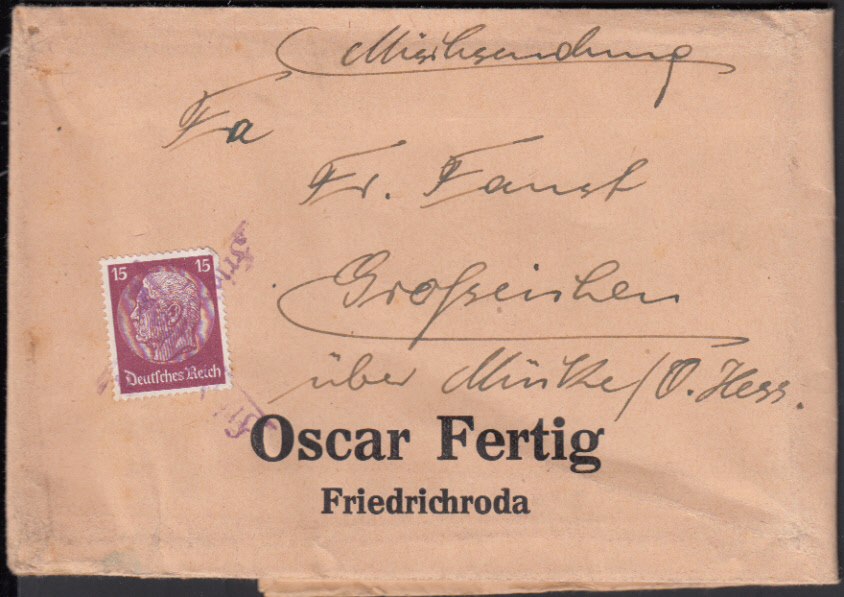 Mischsendung
Fa
Fr. Faust
Großeichen
über Mücke/O. Hess.
15 15
Deutsches Reich
Oscar Fertig
Friedrichroda